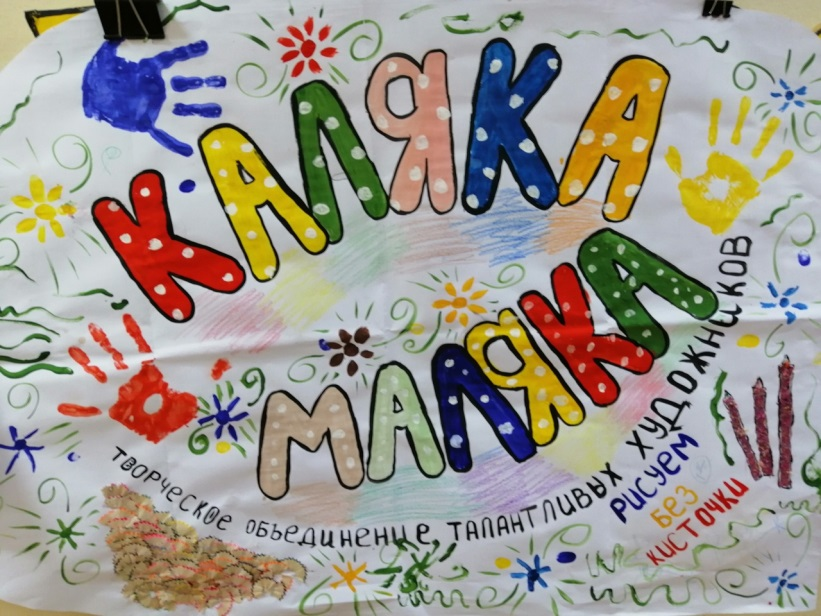 КАЛЯКА
МАЛЯКА
ТВОРЧЕСКОЕ ОБЪЕДИНЕНИЕ ТАЛАНТЛИВЫХ ХУДОЖНИКОВ
РИСУЕМ
БЕЗ
КИСТОЧКИ